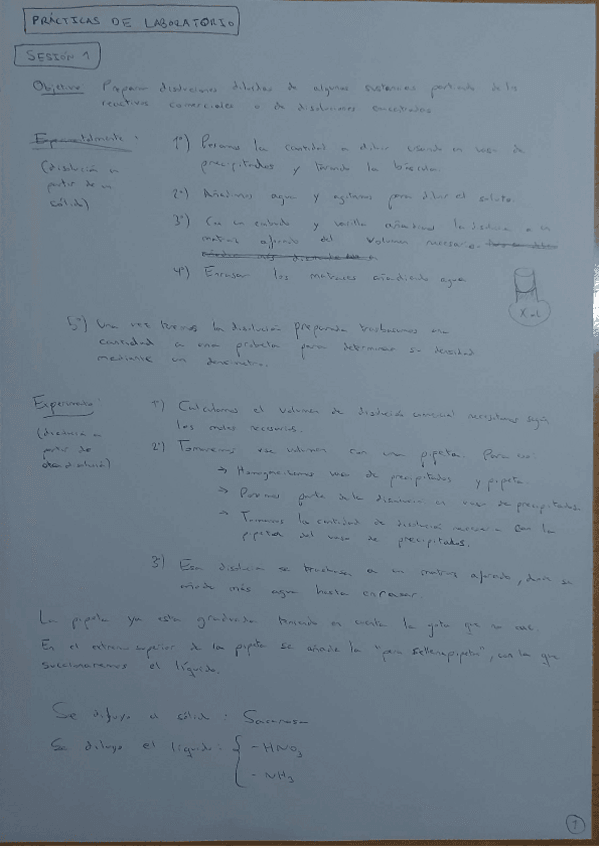 PRÁCTICAS DE LABORATORIO
SESIÓN 1
Objetivo: Preparar disoluciones diluidas de algunas sustancias partiendo de los
reactivos comerciales o de disoluciones concentradas
Experimentalmente:
(disolución a
partir de un
sólido)
1º) Pesamos la cantidad a diluir usando un vaso de
precipitados y tarando la báscula.
2º) Añadimos agua y agitamos para diluir el soluto.
3º) Con un embudo y varilla añadimos la disolución a un
matraz aforado del volumen necesario
4º) Enrasar los matraces añadiendo agua
X mL
5º) Una vez tenemos la disolución preparada trasvasamos una
cantidad a una probeta para determinar su densidad
mediante un densímetro.
Experimento:
(disolución a
partir de
otra disolución)
1º) Calculamos el volumen de disolución comercial necesitamos según
los moles necesarios.
2º) Tomaremos ese volumen con una pipeta. Para eso:
→ Homogeneizamos vaso de precipitados y pipeta.
→ Ponemos parte de la disolución en vaso de precipitados
→ Tomamos la cantidad de disolución necesaria con la
pipeta del vaso de precipitados.
3º) Esa disolución se trasvasa a un matraz aforado, donde se
añade más agua hasta enrasar.
La pipeta ya esta graduada teniendo en cuenta la gota que no cae.
En el extremo superior de la pipeta se añade la "pera rellenapipeta", con la que
succionaremos el líquido.
Se diluyo el sólido: Sacarosa
Se diluyo el líquido: - HNO₃
- NH₃
1